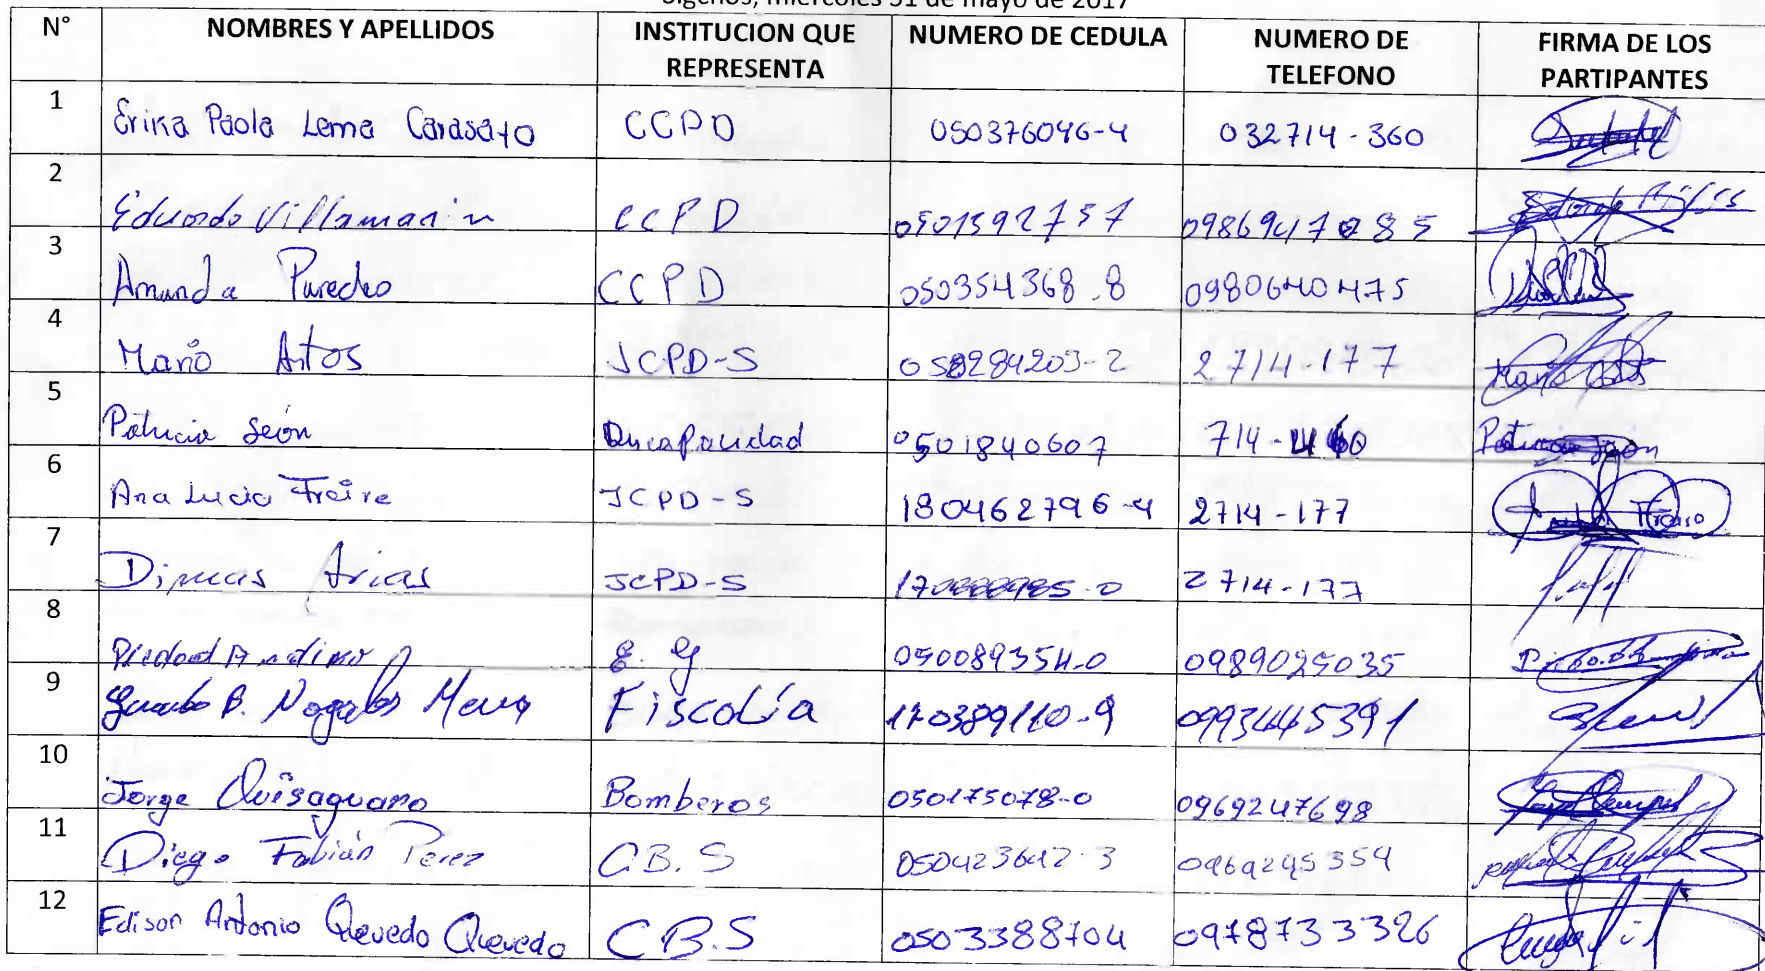 miércoles 31 de mayo de 2017
N° NOMBRES Y APELLIDOS INSTITUCION QUE REPRESENTA NUMERO DE CEDULA NUMERO DE TELEFONO FIRMA DE LOS PARTIPANTES
1 Erika Paola Lema Carasayo CCPD 050376046-4 032714-360
2 Eduardo Villamarin CCPD 0501592757 0986947085
3 Amanda Paredes CCPD 050354368-8 0980640475
4 Mario Artos JCPD-S 2714-177 Mario
5 Patricia León Discapacidad 0501840607 714- Patricia
6 Ana Lucia Freire JCPD-S 180462796-4 2714-177
7 Dimas Arias JCPD-S 2714-177
8 Piedad 050089354-0 0989025035
9 B. Nogales Mena Fiscalía 170389110-9 0993445391
10 Jorge Quisaguano Bomberos 050175078-0 0969247698
11 Diego Fabián Perez C.B.S 050423642-3 0969245354
12 Edison Antonio Quevedo Quevedo C.B.S 0503388704 0978733326